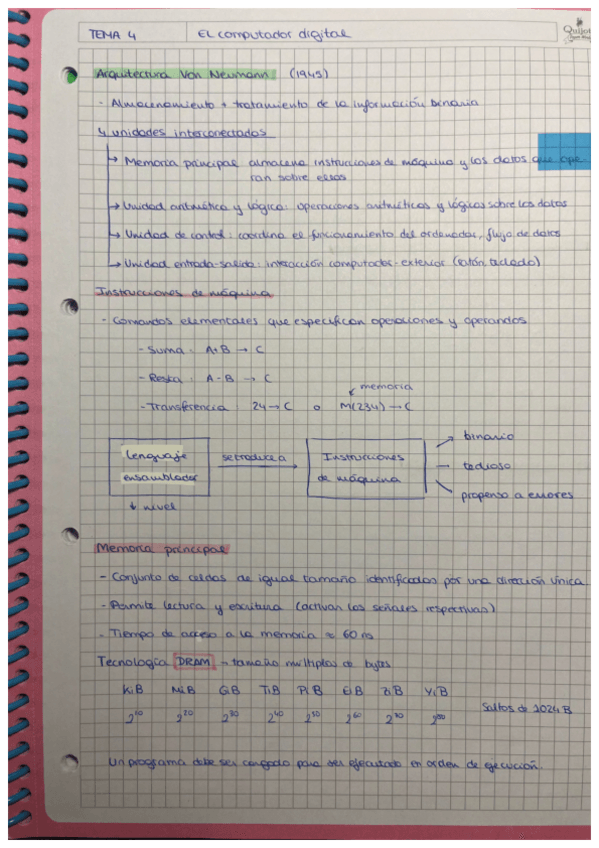 TEMA 4 EL computador digital
Quijote
Arquitectura Von Neumann (1945)
- Almacenamiento + tratamiento de la información binaria
4 unidades interconectadas
→ Memoria principal almacena instrucciones de máquina y los datos que ope-
ran sobre ellos
→ Unidad aritmética y lógica: operaciones aritméticas y lógicas sobre los datos
→ Unidad de control: coordina el funcionamiento del ordenador, flujo de datos
→ Unidad entrada-salida: interacción computador-exterior (ratón, teclado)
Instrucciones de máquina
- Comandos elementales que especifican operaciones y operandos
- Suma: A+B → C
- Resta: A-B → C
↙ memoria
- Transferencia: 24 → C o M(234) → C
Lenguaje ensamblador
se traduce a
Instrucciones de máquina
binario
tedioso
propenso a errores
↓ nivel
Memoria principal
- Conjunto de celdas de igual tamaño identificadas por una dirección única
- Permite lectura y escritura (activan las señales respectivas)
- Tiempo de acceso a la memoria ≈ 60 ns
Tecnología DRAM - tamaño múltiplos de bytes
KiB MiB GiB TiB PiB EiB ZiB YiB
Saltos de 1024 B
2^10 2^20 2^30 2^40 2^50 2^60 2^70 2^80
Un programa debe ser cargado para ser ejecutado en orden de ejecución.